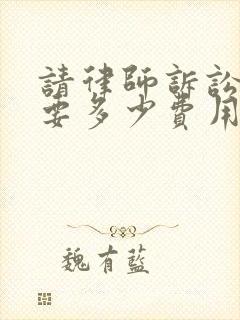 請律師訴訟
要多少費用
魏有藍